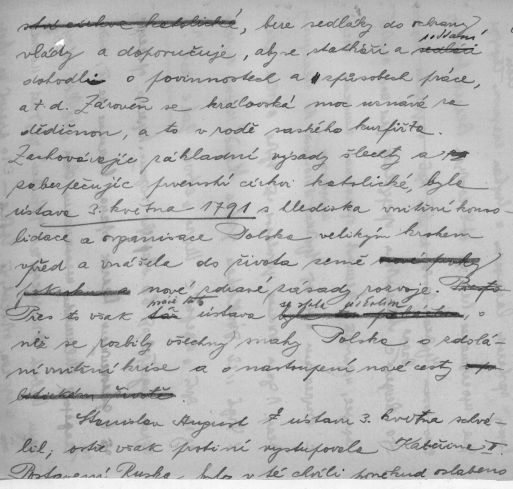 církve katolické, bere sedláky do ochrany
vlády a doporučuje, aby se statkáři a poddaní sedláci
dohodli o povinnostech a způsobech práce,
a t. d. Zároveň se královská moc uznává za
dědičnou, a to v rodě saského kurfiřta.
Zachovávajíc základní výsady šlechty a
zabezpečujíc prvenství církvi katolické, byla
ústava 3. května 1791 s hlediska vnitřní konso-
lidace a organisace Polska velikým krokem
vpřed a vnášela do života země
nové zdravé zásady rozvoje.
Přes to však právě tato ústava se stala , o
něž se rozbily všechny snahy Polska o zdolá-
ní vnitřní krise a o nastoupení nové cesty

Stanislav August ústavu 3. května schvá-
lil, ostře však proti ní vystupovala Kateřina II.
Postavení Ruska bylo v té chvíli poněkud oslabeno